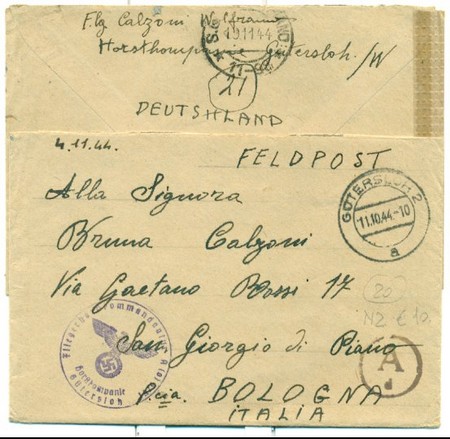 Flg Calzoni Wolframo
Horstkompanie Gütersloh/W
19.11.44
21
DEUTSHLAND
4.11.44.
FELDPOST
GÜTERSLOH 2
11.10.44-10
a
Alla Signora
Bruna Calzoni
Via Gaetano Rossi 17
20
N2 € 10
San Giorgio di Piano
A
d
Horstkompanie
Gütersloh
P.cia BOLOGNA
ITALIA